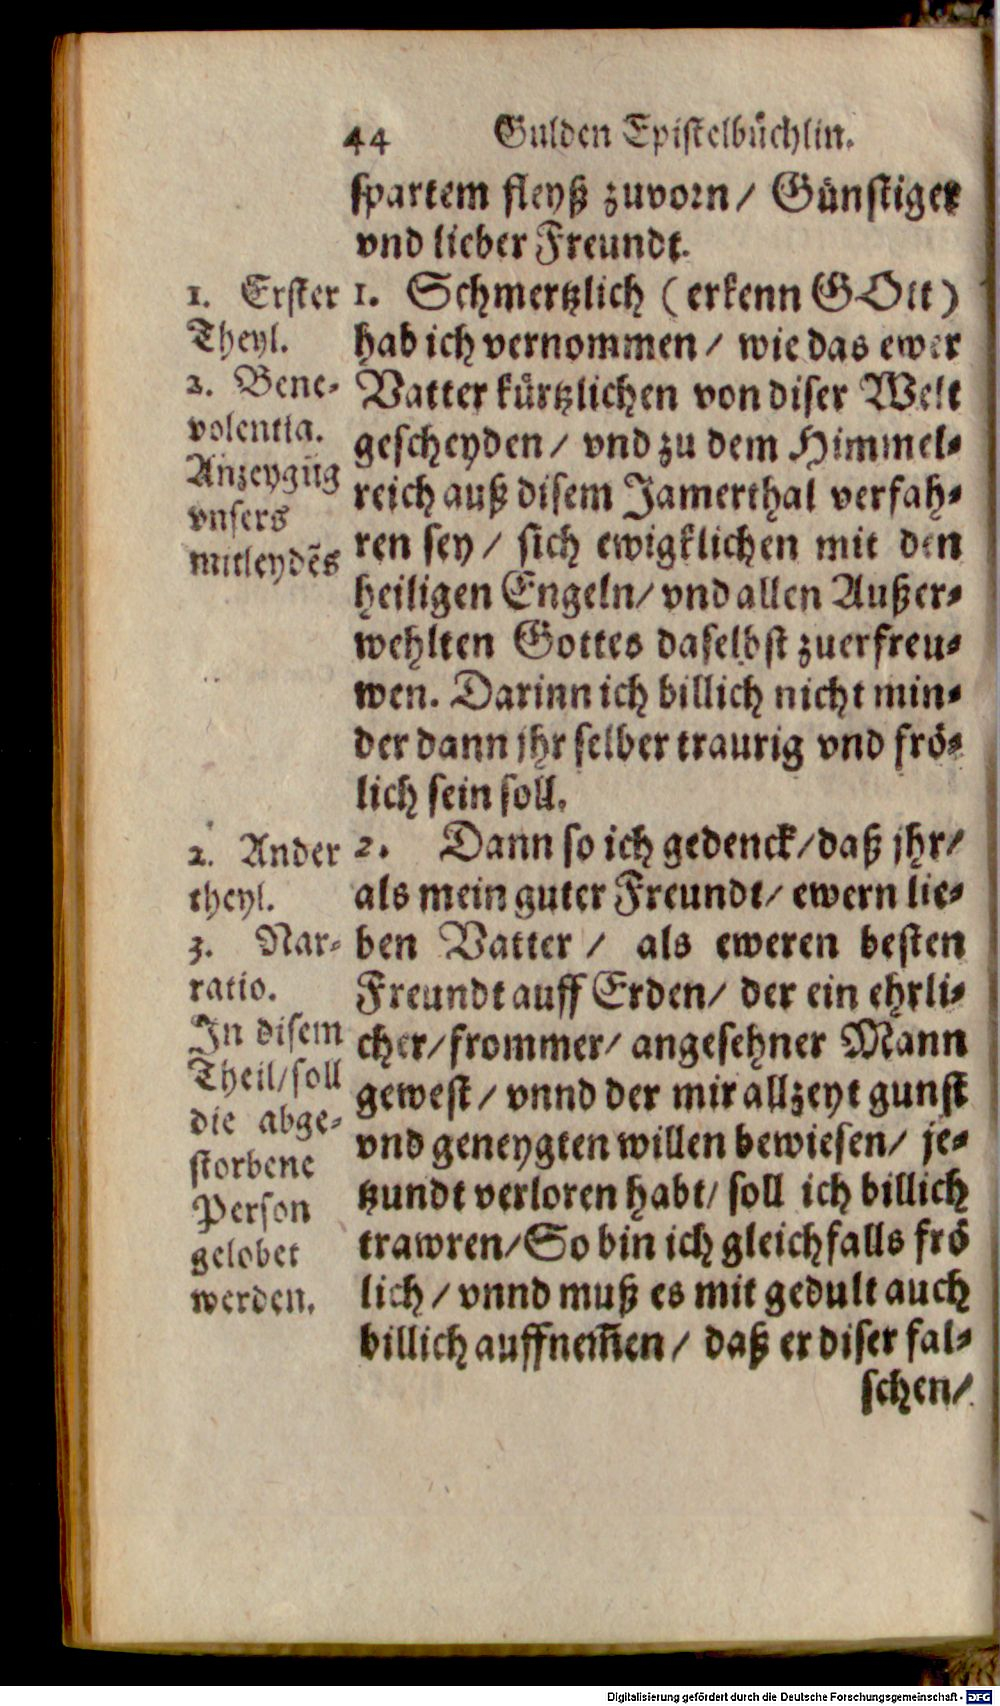 44 Gulden Epistelbüchlin.
spartem fleyß zuvorn/ Günstiger
vnd lieber Freundt.
1. Erster
Theyl.
2. Bene-
volentia.
Anzeygũg
vnsers
mitleydẽs
1. Schmertzlich (erkenn GOtt)
hab ich vernommen/ wie das ewer
Vatter kürtzlichen von diser Welt
gescheyden/ vnd zu dem Himmel-
reich auß disem Jamerthal verfah-
ren sey/ sich ewigklichen mit den
heiligen Engeln/ vnd allen Außer-
wehlten Gottes daselbst zuerfreu-
wen. Darinn ich billich nicht min-
der dann jhr selber traurig vnd frö-
lich sein soll.
2. Ander
theyl.
3. Nar-
ratio.
In disem
Theil/soll
die abge-
storbene
Person
gelobet
werden.
2. Dann so ich gedenck/daß jhr/
als mein guter Freundt/ ewern lie-
ben Vatter/ als eweren besten
Freundt auff Erden/ der ein ehrli-
cher/frommer/ angesehner Mann
gewest/ vnnd der mir allzeyt gunst
vnd geneygten willen bewiesen/ je-
tzundt verloren habt/ soll ich billich
trawren/So bin ich gleichfalls frö
lich/ vnnd muß es mit gedult auch
billich auffnem̃en/ daß er diser fal-
schen/
Digitalisierung gefördert durch die Deutsche Forschungsgemeinschaft - DFG